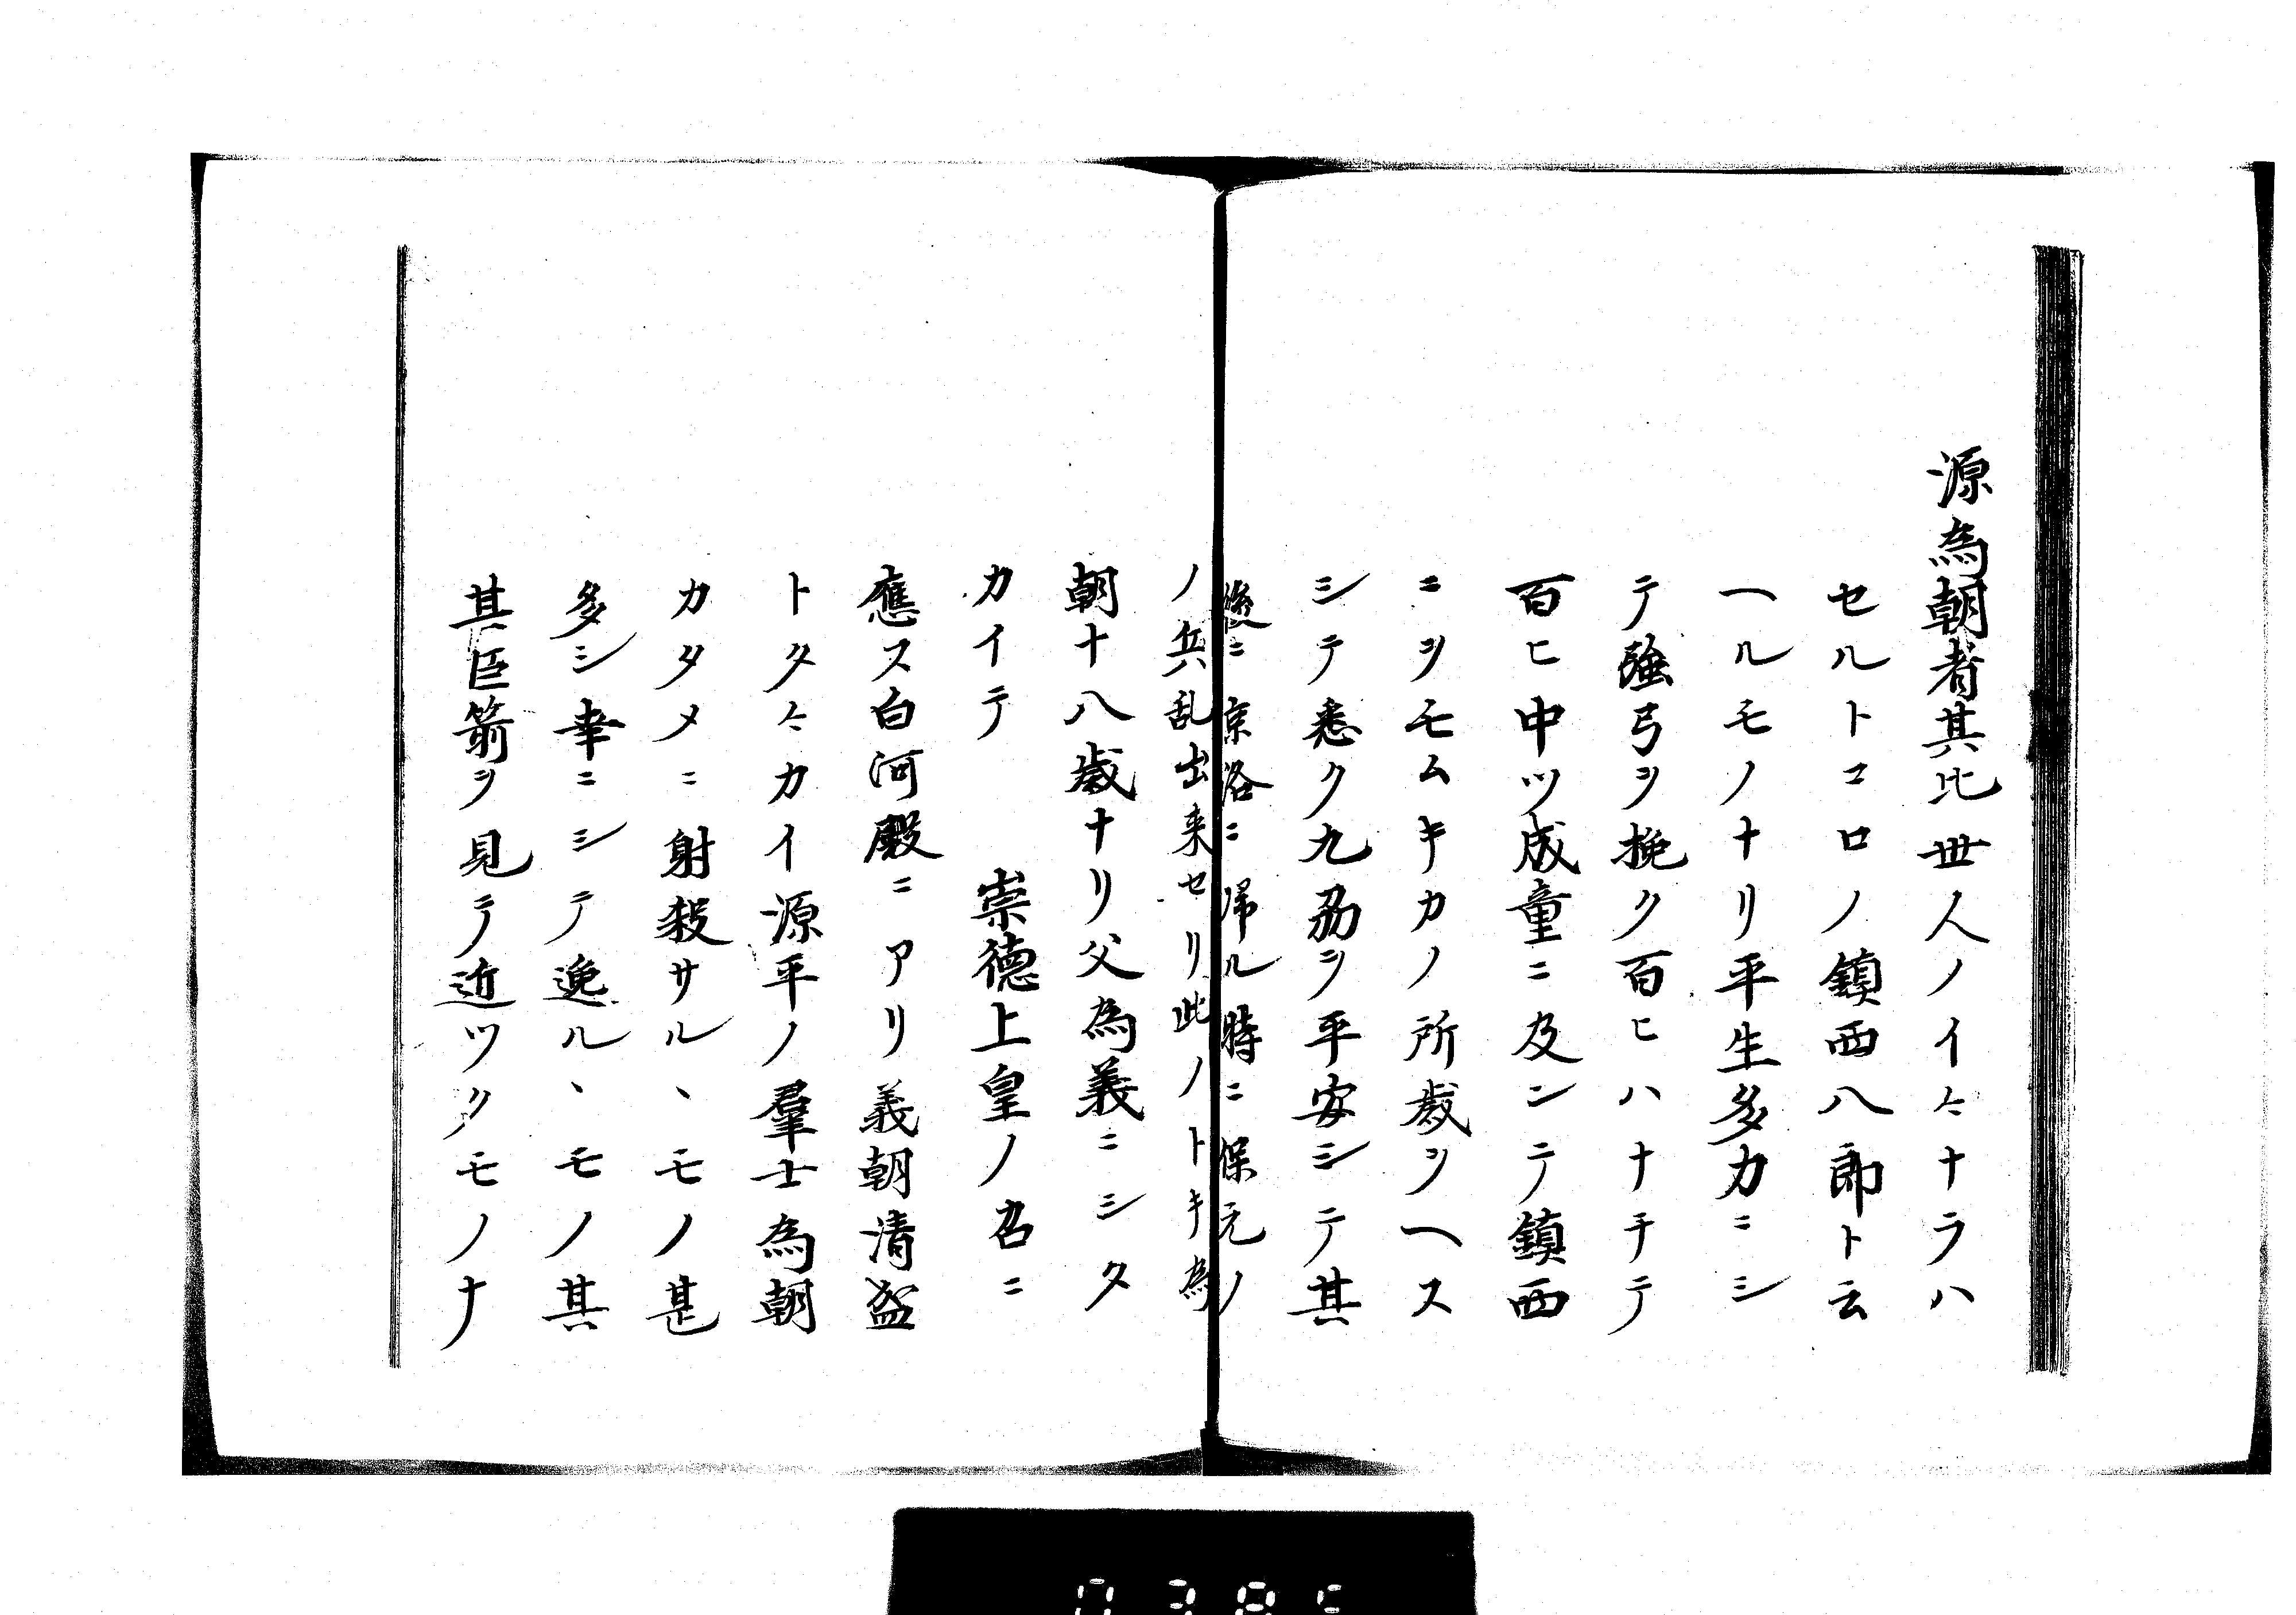 源為朝者其比世人ノイヒナラハ
セルトコロノ鎮西八郎ト云
ヘルモノナリ平生多力ニシ
テ強弓ヲ挽ク百ヒハナチテ
百ヒ中ツ成童ニ及ンテ鎮西
ニヲモムキカノ所歳ヲヘス
シテ悉ク九州ヲ平安シテ其
後ニ京洛ニ帰ル時ニ保元ノ
ノ兵乱出来セリ此ノトキ為
朝十八歳ナリ父為義ニシタ
カイテ 崇徳上皇ノ召ニ
應ス白河殿ニアリ義朝清盛
トタヽカイ源平ノ羣士為朝
カタメニ射殺サルヽモノ甚
多シ幸ニシテ逸ルヽモノ其
其巨箭ヲ見テ近ツクモノナ